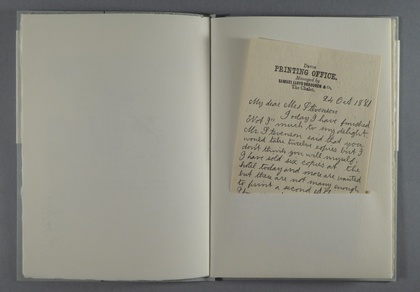 Davos
PRINTING OFFICE,
Managed by
SAMUEL LLOYD OSBOURNE & Co,
The Chalet.
24 Oct 1881
My dear Mrs Stevenson
Today I have finished
much to my delight
Mr Stevenson said that you
would take twelve copies but I
don't think you will myself.
I have sold six copies at the
hotel today and more are wanted
but there are not many enough
to print a second